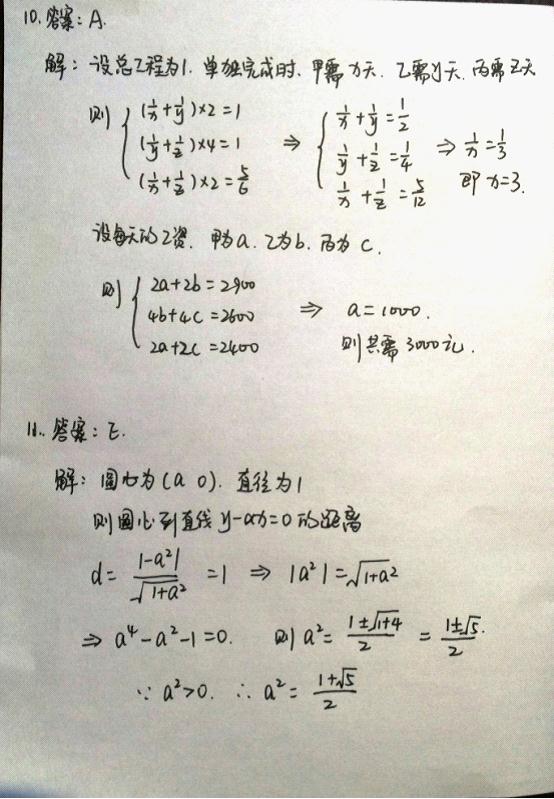 10.答案:A.
解:设总工程为1.单独完成时.甲需x天.乙需y天.丙需z天
则 { (1/x+1/y)×2=1 ⇒ { 1/x+1/y=1/2
(1/y+1/z)×4=1 1/y+1/z=1/4 ⇒ 1/x=1/3
(1/x+1/z)×2=5/6 1/x+1/z=5/12 即x=3.
设每天的工资.甲为a.乙为b.丙为c.
则 { 2a+2b=2900
4b+4c=2600 ⇒ a=1000.
2a+2c=2400 则共需3000元.
11.答案:E.
解:圆心为(a 0).直径为1
则圆心到直线y-ax=0的距离
d=|-a²|/√(1+a²)=1 ⇒ |a²|=√(1+a²)
⇒ a⁴-a²-1=0. 则a²=(1±√(1+4))/2=(1±√5)/2.
∵ a²>0. ∴ a²=(1+√5)/2